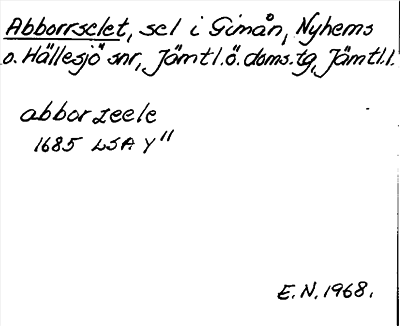 Abborrselet, sel i Gimån, Nyhems
o. Hällesjö snr, Jämtl.ö. doms.tg, Jämtl.l.
abborzeele
1685 LSA Y"
E.N. 1968.